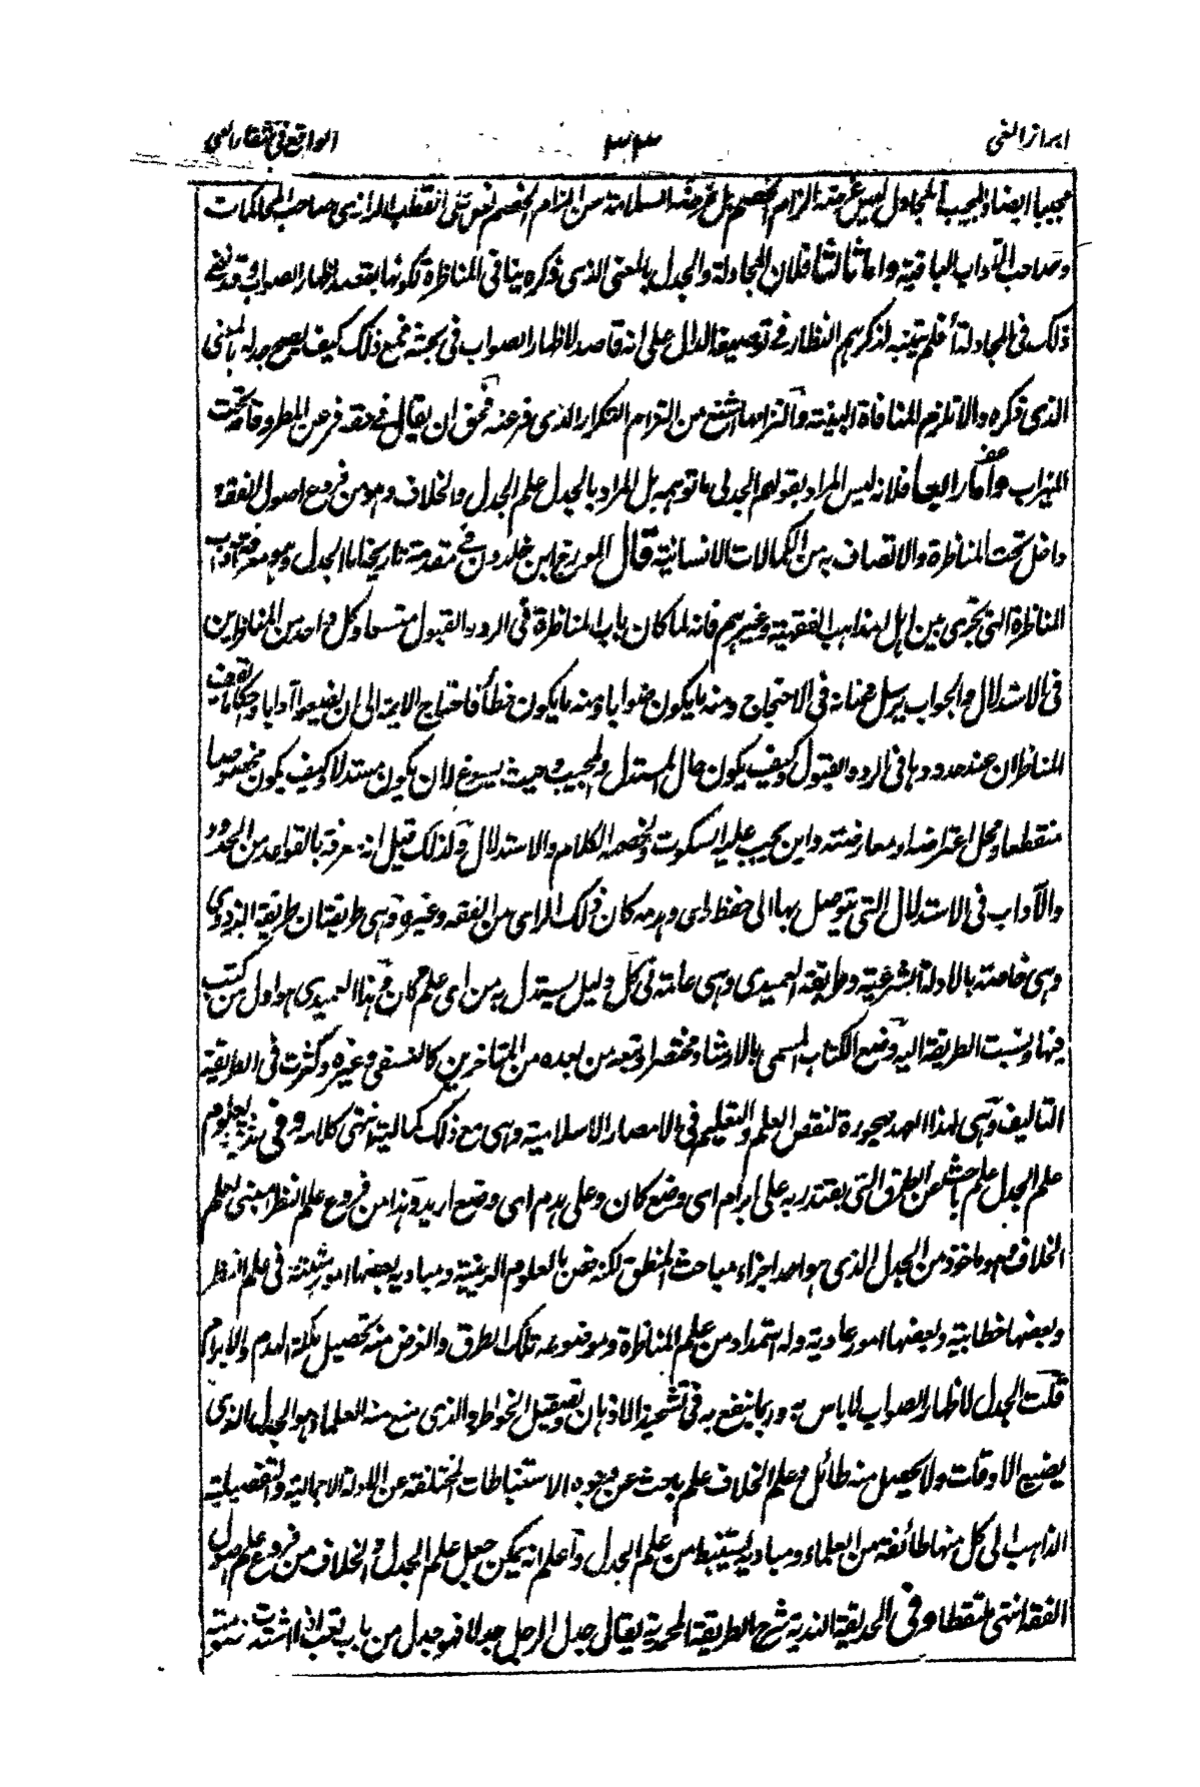 ابراز الغی ٣٣ الواقع فی شفاء العی
مجيبا ايضا والمجيب المجادل ليس غرضه الزام الخصم بل غرضه السلامة من الزام الخصم نص على القطب الرازی صاحب المحاكمات
وصاحب الآداب الباقية واما ثالثا فلان المجادلة والجدل بالمعنى الذی ذكره ينافی المناظرة لكونها بقصد اظهار الصواب وقد نفی
ذلك فی المجادلة أفلم يتنبه لذكرهم النظار فی توصيفه الدال على انه قاصد لاظهار الصواب فی بحثه فمع ذلك كيف يصح جدله بالمعنى
الذی ذكره والا تلزم المنافاة البينة والتزامها اشنع من التزام التكرار الذی فر عنه فحق ان يقال فی حقه فر عن المطر وقام تحت
الميزاب واما رابعا فلانه ليس المراد بقولهم الجدلی ما توهمه بل المراد بالجدل علم الجدل والخلاف وهو من فروع اصول الفقه
داخل تحت المناظرة والاتصاف به من الكمالات الانسانية قال المورخ ابن خلدون فی مقدمة تاريخه اما الجدل وهو معرفة آداب
المناظرة التی تجری بين اهل المذاهب الفقهية وغيرهم فانه لما كان باب المناظرة فی الرد والقبول متسعا وكل واحد من المناظرين
فی الاستدلال والجواب يرسل عنانه فی الاحتجاج ومنه ما يكون صوابا ومنه ما يكون خطأ فاحتاج الائمة الى ان يضعوا آدابا واحكاما يقف
المناظران عند حدودها فی الرد والقبول وكيف يكون حال المستدل والمجيب وحيث يسوغ له ان يكون مستدلا وكيف يكون مخصوصا
منقطعا ومحل اعتراضه او معارضته واين يجب عليه السكوت ولخصمه الكلام والاستدلال ولذلك قيل انه معرفة بالقواعد من الحدود
والآداب فی الاستدلال التی يتوصل بها الى حفظ رای وهدمه كان ذلك الرای من الفقه وغيره وهی طريقتان طريقة البزدوی
وهی خاصة بالادلة الشرعية وطريقة العميدی وهی عامة فی كل دليل يستدل به من ای علم كان وهذا العميدی هو اول من كتب
فيها ونسبت الطريقة اليه وضع الكتاب المسمى بالارشاد مختصرا وتبعه من بعده من المتاخرين كالنسفی وغيره وكثرت فی الطريقة
التآليف وهی لهذا العهد مهجورة لنقص العلم والتعليم فی الامصار الاسلامية وهی مع ذلك كمالية انتهى كلامه وفی العلوم
علم الجدل علم باحث عن الطرق التی يقتدر به على ابرام ای وضع كان وعلى هدم ای وضع اريد وهذا من فروع علم النظر ومبنى لعلم
الخلاف وهو ماخوذ من الجدل الذی هو احد اجزاء مباحث المنطق لكنه خص بالعلوم الدينية ومباديه بعضها امور مبينة فی علم النظر
وبعضها خطابية وبعضها امور عادية وله استمداد من علم المناظرة وموضوعه تلك الطرق والغرض منه تحصيل ملكة الهدم والابرام
قلت الجدل لاظهار الصواب لا باس به وربما ينفع به فی تشحيذ الاذهان وتصقيل الخواطر والذی منع منه العلماء هو الجدل الذی
يضيع الاوقات ولا يحصل منه طائل وعلم الخلاف علم باحث عن وجوه الاستنباطات المختلفة عن الادلة الاجمالية والتفصيلية
الذاهب الى كل منها طائفة من العلماء ومباديه يستنبط من علم الجدل واعلم انه يمكن جعل علم الجدل والخلاف من فروع علم اصول
الفقه انتهى ملتقطا وفی الحديقة الندية شرح الطريقة المحمدية يقال جدل الرجل جدلا فهو جدل من باب تعب اذا اشتدت خصومته